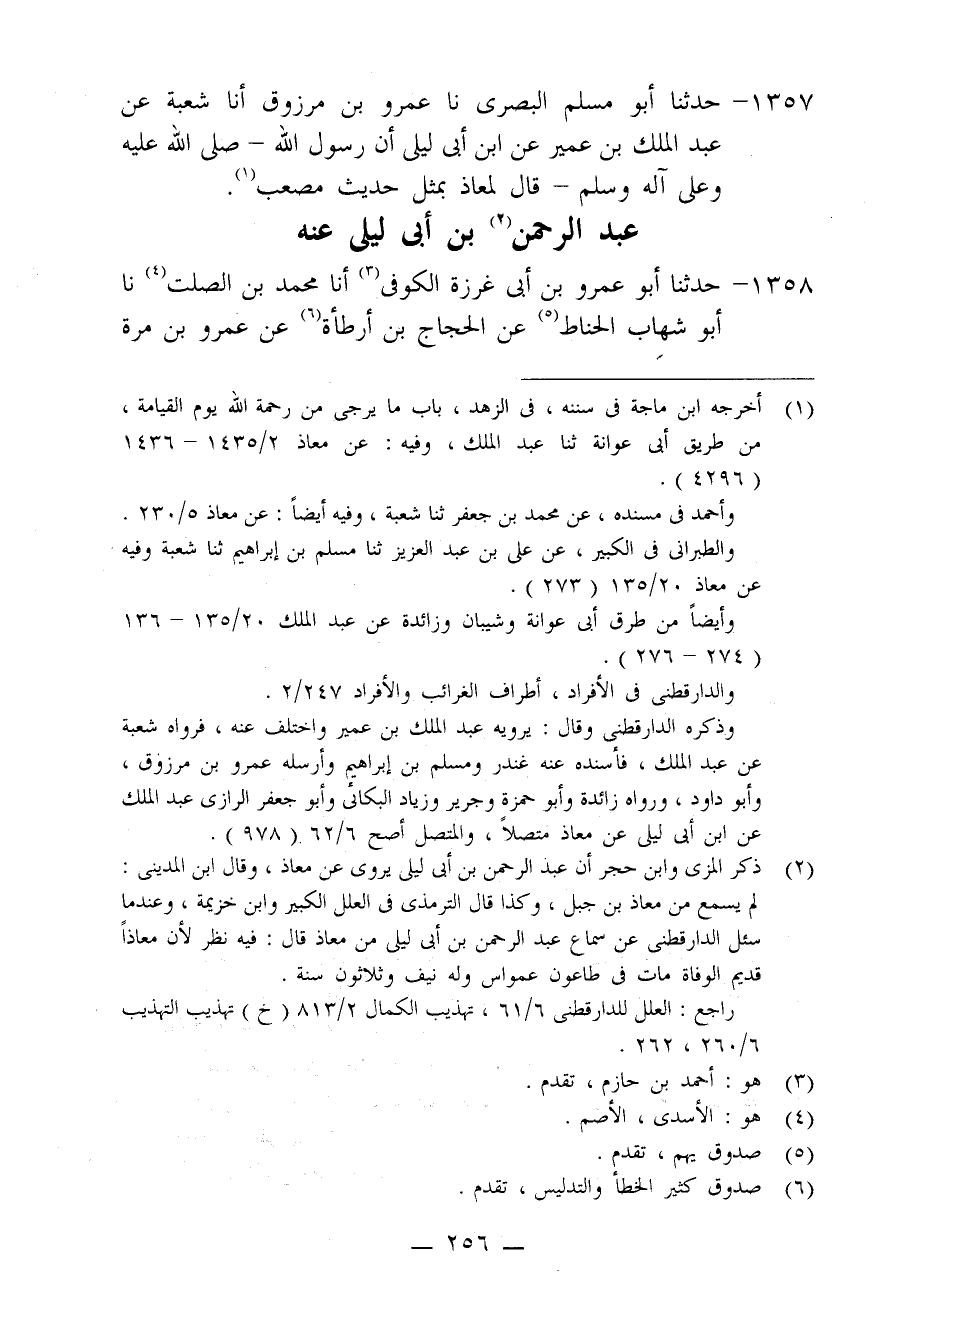 ١٣٥٧– حدثنا أبو مسلم البصرى نا عمرو بن مرزوق أنا شعبة عن
عبد الملك بن عمير عن ابن أبى ليلى أن رسول الله – صلى الله عليه
وعلى آله وسلم – قال لمعاذ بمثل حديث مصعب(١).
عبد الرحمن(٢) بن أبى ليلى عنه
١٣٥٨– حدثنا أبو عمرو بن أبى غرزة الكوفى(٣) أنا محمد بن الصلت(٤) نا
أبو شهاب الحناط(٥) عن الحجاج بن أرطأة(٦) عن عمرو بن مرة
(١) أخرجه ابن ماجة فى سننه ، فى الزهد ، باب ما يرجى من رحمة الله يوم القيامة ،
من طريق أبى عوانة ثنا عبد الملك ، وفيه : عن معاذ ١٤٣٥/٢ – ١٤٣٦
( ٤٢٩٦ ) .
وأحمد فى مسنده ، عن محمد بن جعفر ثنا شعبة ، وفيه أيضاً : عن معاذ ٢٣٠/٥ .
والطبرانى فى الكبير ، عن على بن عبد العزيز ثنا مسلم بن إبراهيم ثنا شعبة وفيه
عن معاذ ١٣٥/٢٠ ( ٢٧٣ ) .
وأيضاً من طرق أبى عوانة وشيبان وزائدة عن عبد الملك ١٣٥/٢٠ – ١٣٦
( ٢٧٤ – ٢٧٦ ) .
والدارقطنى فى الأفراد ، أطراف الغرائب والأفراد ٢/٢٤٧ .
وذكره الدارقطنى وقال : يرويه عبد الملك بن عمير واختلف عنه ، فرواه شعبة
عن عبد الملك ، فأسنده عنه غندر ومسلم بن إبراهيم وأرسله عمرو بن مرزوق ،
وأبو داود ، ورواه زائدة وأبو حمزة وجرير وزياد البكائى وأبو جعفر الرازى عبد الملك
عن ابن أبى ليلى عن معاذ متصلاً ، والمتصل أصح ٦٢/٦ ( ٩٧٨ ) .
(٢) ذكر المزى وابن حجر أن عبد الرحمن بن أبى ليلى يروى عن معاذ ، وقال ابن المدينى :
لم يسمع من معاذ بن جبل ، وكذا قال الترمذى فى العلل الكبير وابن خزيمة ، وعندما
سئل الدارقطنى عن سماع عبد الرحمن بن أبى ليلى من معاذ قال : فيه نظر لأن معاذاً
قديم الوفاة مات فى طاعون عمواس وله نيف وثلاثون سنة .
راجع : العلل للدارقطنى ٦١/٦ ، تهذيب الكمال ٨١٣/٢ ( خ ) تهذيب التهذيب
٢٦٠/٦ ، ٢٦٢ .
(٣) هو : أحمد بن حازم ، تقدم .
(٤) هو : الأسدى ، الأصم .
(٥) صدوق يهم ، تقدم .
(٦) صدوق كثير الخطأ والتدليس ، تقدم .
— ٢٥٦ —